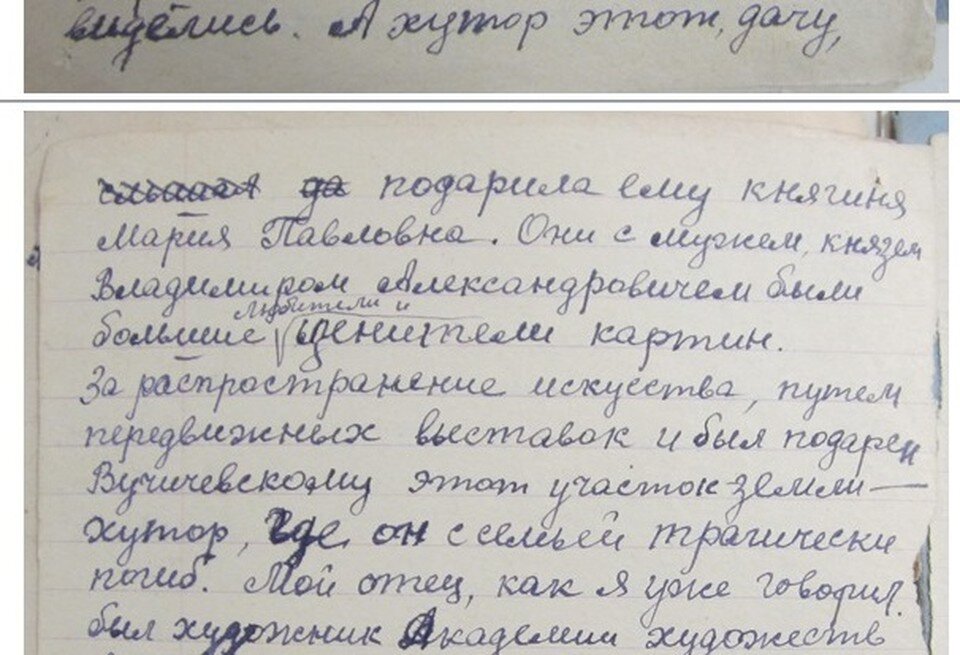 виделись. А хутор этот, дачу,
да подарила ему княгиня
Мария Павловна. Они с мужем, князем
Владимиром Александровичем были
любители и
большие ценители картин.
За распространение искусства, путем
передвижных выставок и был подарен
Вучичевскому этот участок земли —
хутор, где он с семьей трагически
погиб. Мой отец, как я уже говорил.
был художник Академии художеств